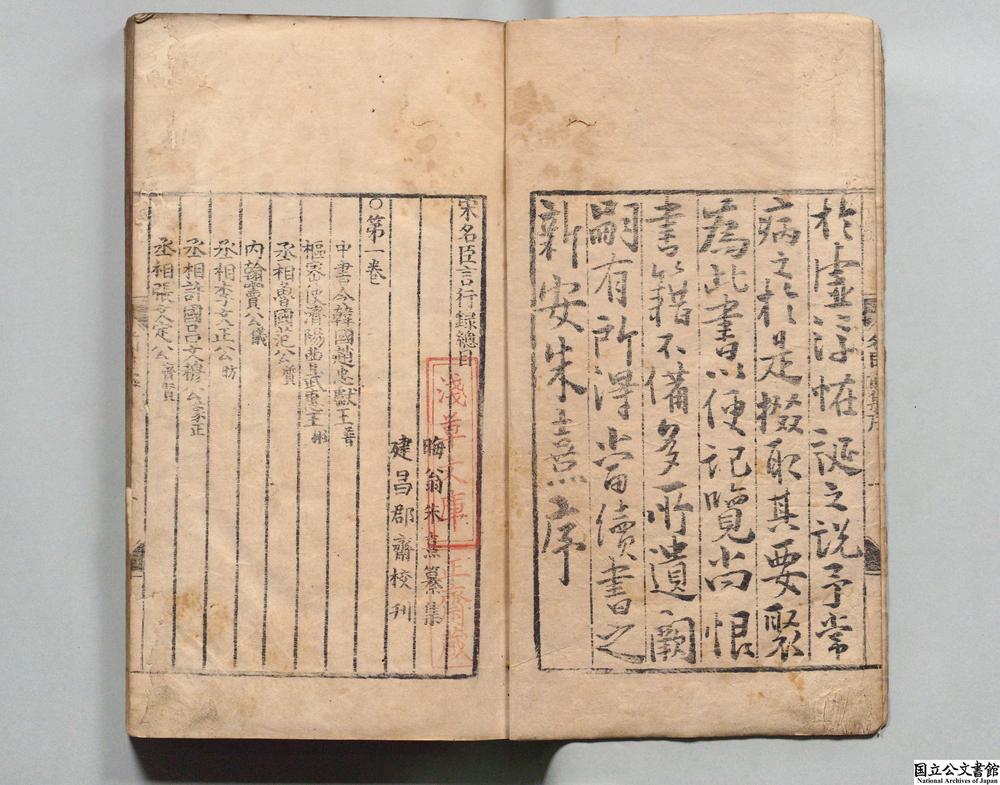 於虛浮怪誕之說予常
病之於是掇取其要聚
為此書以便記覽尚恨
書籍不備多所遺闕
嗣有所得當續書之
新安朱熹序
宋名臣言行錄總目
晦翁朱熹纂集
建昌郡齋校刊
○第一卷
中書令韓國趙忠獻王普
樞密使濟陽曹武惠王彬
丞相魯國范公質
內翰竇公儀
丞相李文正公昉
丞相許國呂文穆公蒙正
丞相張文定公齊賢
淺草文庫
国立公文書館
National Archives of Japan